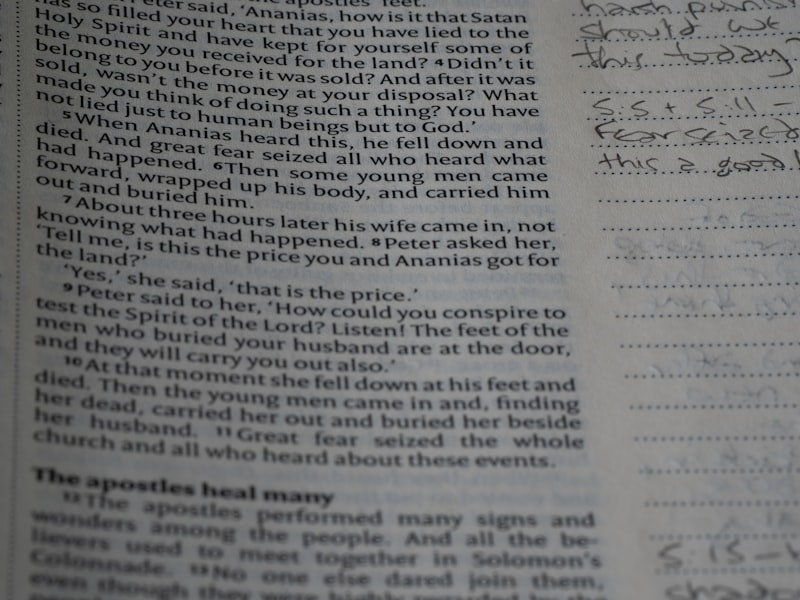 the apostles' feet.
has so filled your heart that you have lied to the
Peter said, 'Ananias, how is it that Satan
Holy Spirit and have kept for yourself some of
the money you received for the land? 4 Didn't it
belong to you before it was sold? And after it was
sold, wasn't the money at your disposal? What
made you think of doing such a thing? You have
not lied just to human beings but to God.'
5 When Ananias heard this, he fell down and
died. And great fear seized all who heard what
had happened. 6 Then some young men came
forward, wrapped up his body, and carried him
out and buried him.
7 About three hours later his wife came in, not
knowing what had happened. 8 Peter asked her,
'Tell me, is this the price you and Ananias got for
the land?'
'Yes,' she said, 'that is the price.'
9 Peter said to her, 'How could you conspire to
test the Spirit of the Lord? Listen! The feet of the
men who buried your husband are at the door,
and they will carry you out also.'
10 At that moment she fell down at his feet and
died. Then the young men came in and, finding
her dead, carried her out and buried her beside
her husband. 11 Great fear seized the whole
church and all who heard about these events.
The apostles heal many
12 The apostles performed many signs and
wonders among the people. And all the be-
lievers used to meet together in Solomon's
Colonnade. 13 No one else dared join them,
even though they were highly regarded by the
harsh
should we
this today?
5:5 + 5:11 -
Fear seized
this a good
5:15 -